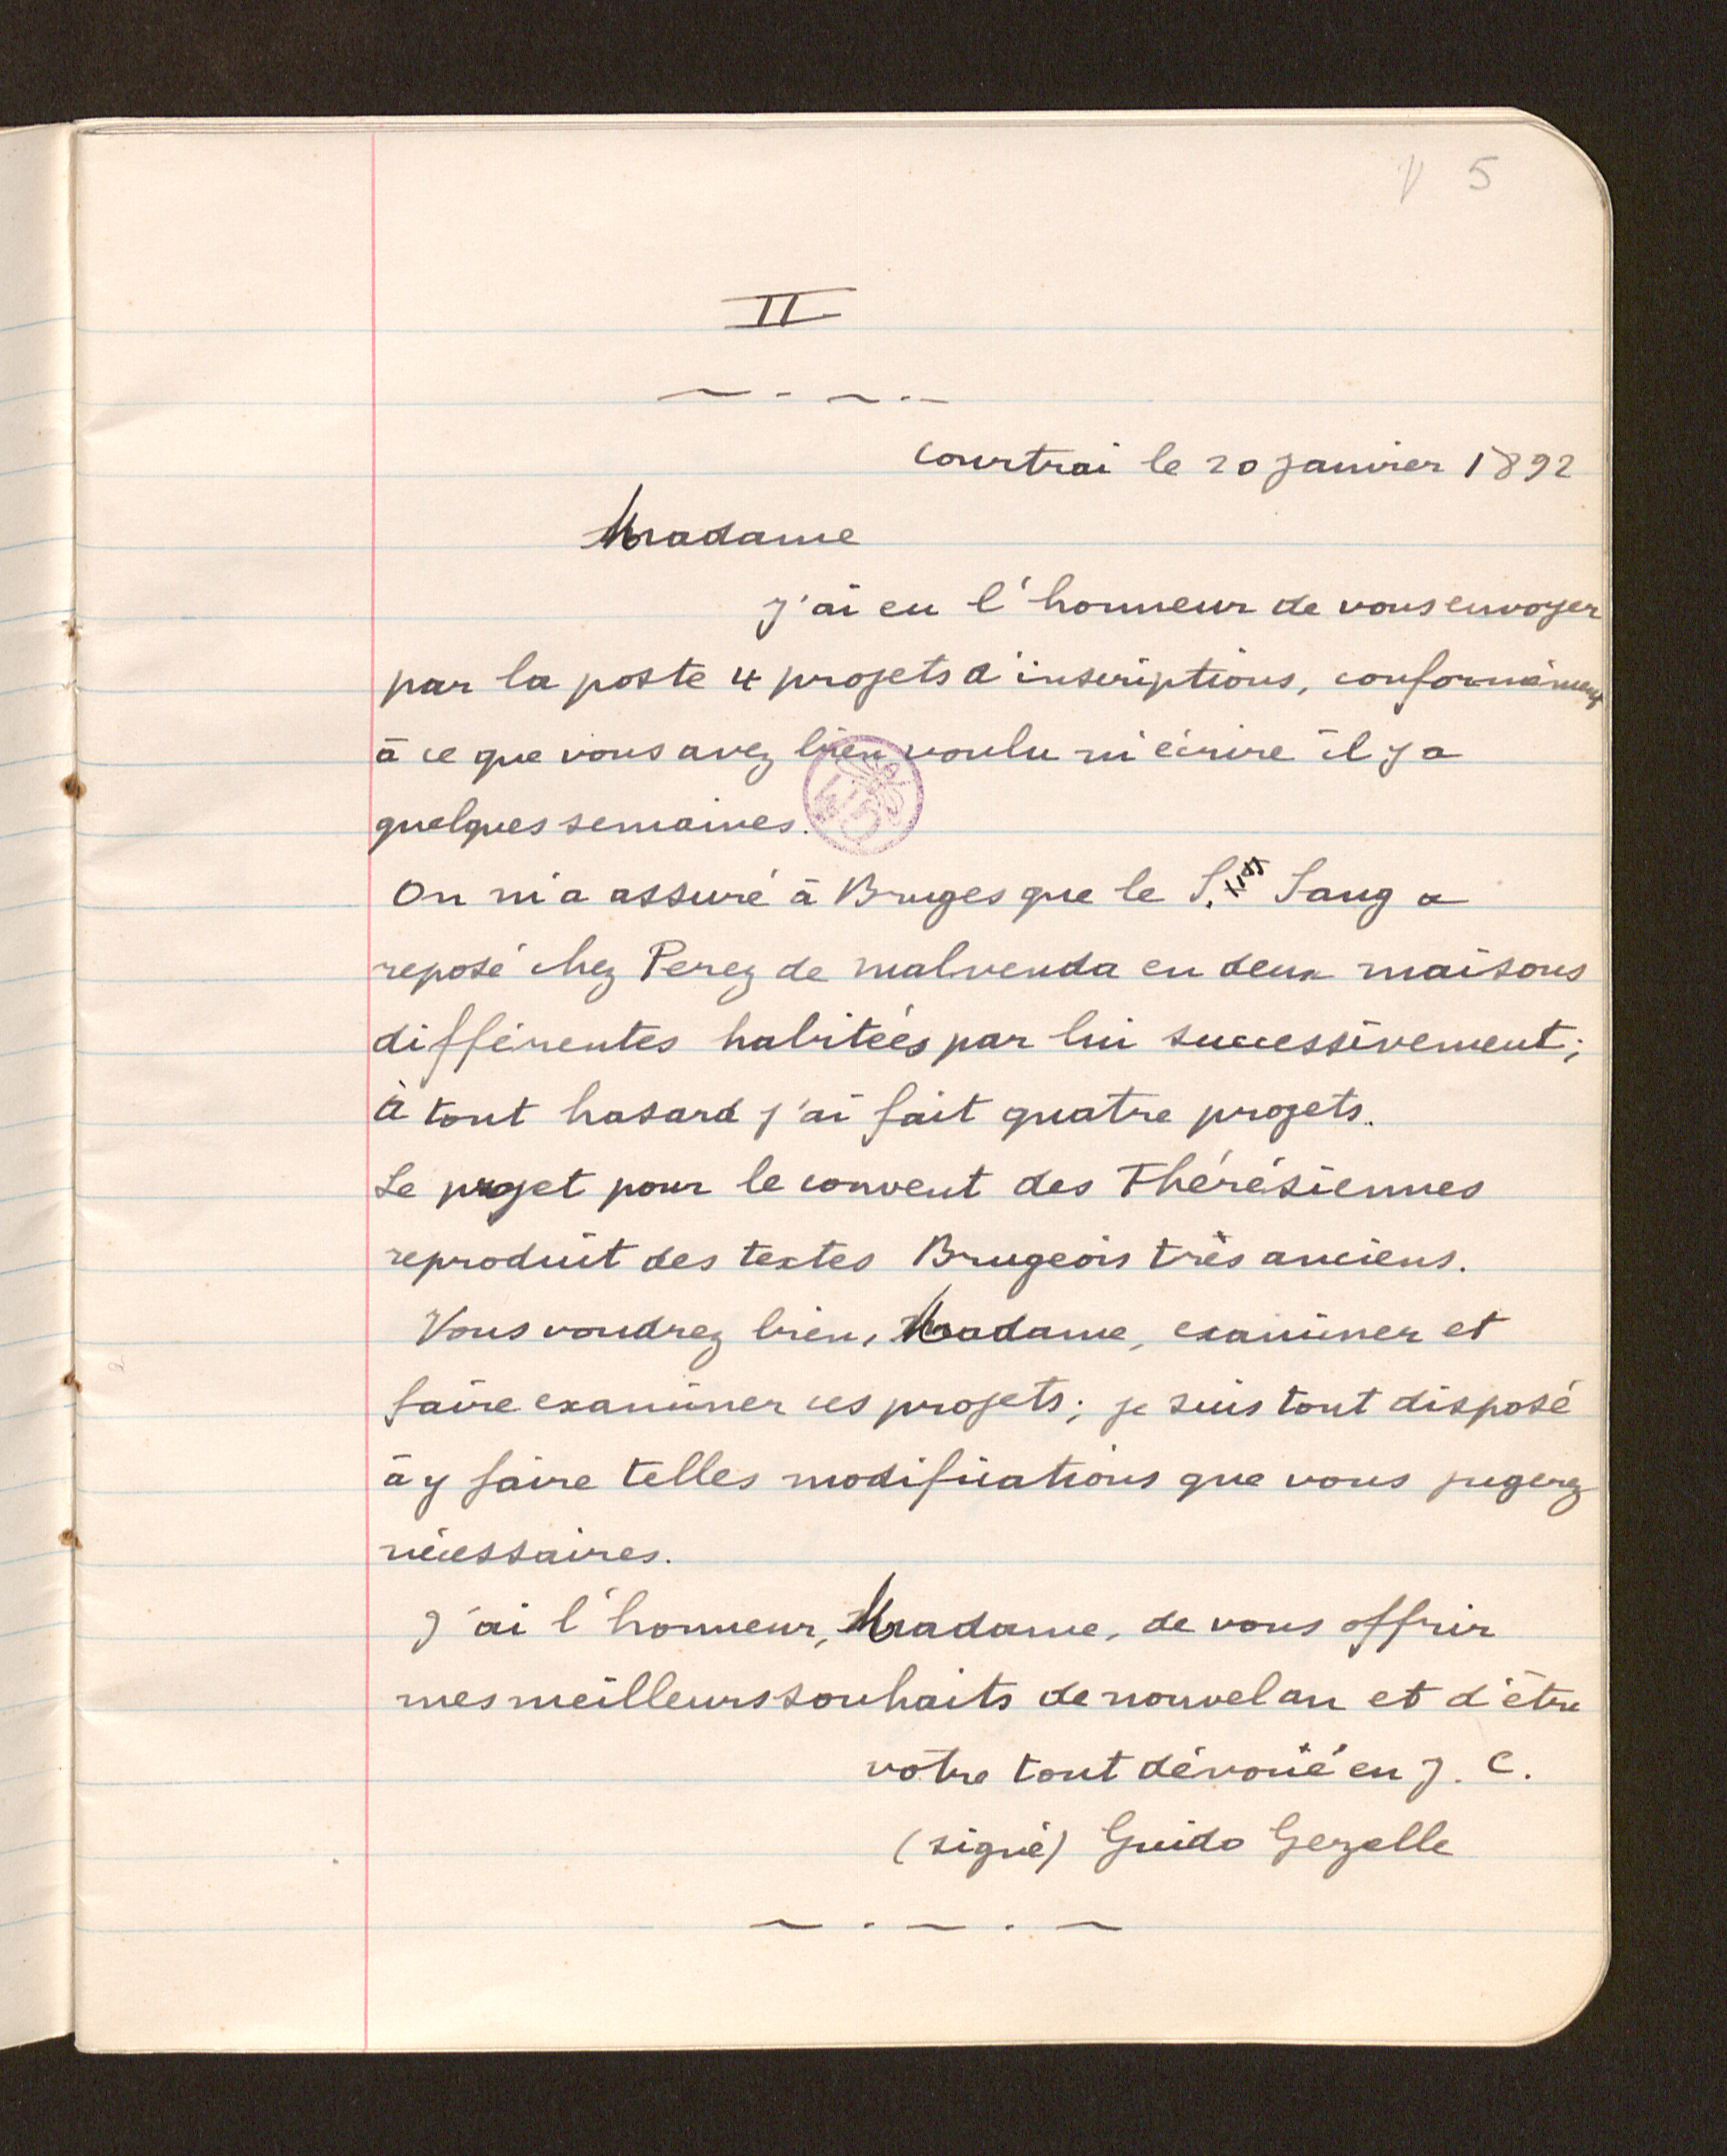 5
II
Courtrai le 20 Janvier 1892
Madame
J'ai eu l'honneur de vous envoyer
par la poste 4 projets d'inscriptions, conformément
à ce que vous avez bien voulu m'écrire il y a
quelques semaines.
On m'a assuré à Bruges que le S. Sang a
reposé chez Perez de Malvenda en deux maisons
différentes habitées par lui successivement;
à tout hasard j'ai fait quatre projets.
Le projet pour le couvent des Thérésiennes
reproduit des textes Brugeois très anciens.
Vous voudrez bien, Madame, examiner et
faire examiner ces projets; je suis tout disposé
à y faire telles modifications que vous jugerez
nécessaires.
J'ai l'honneur, Madame, de vous offrir
mes meilleurs souhaits de nouvel an et d'être
votre tout dévoué en J. C.
(signé) Guido Gezelle